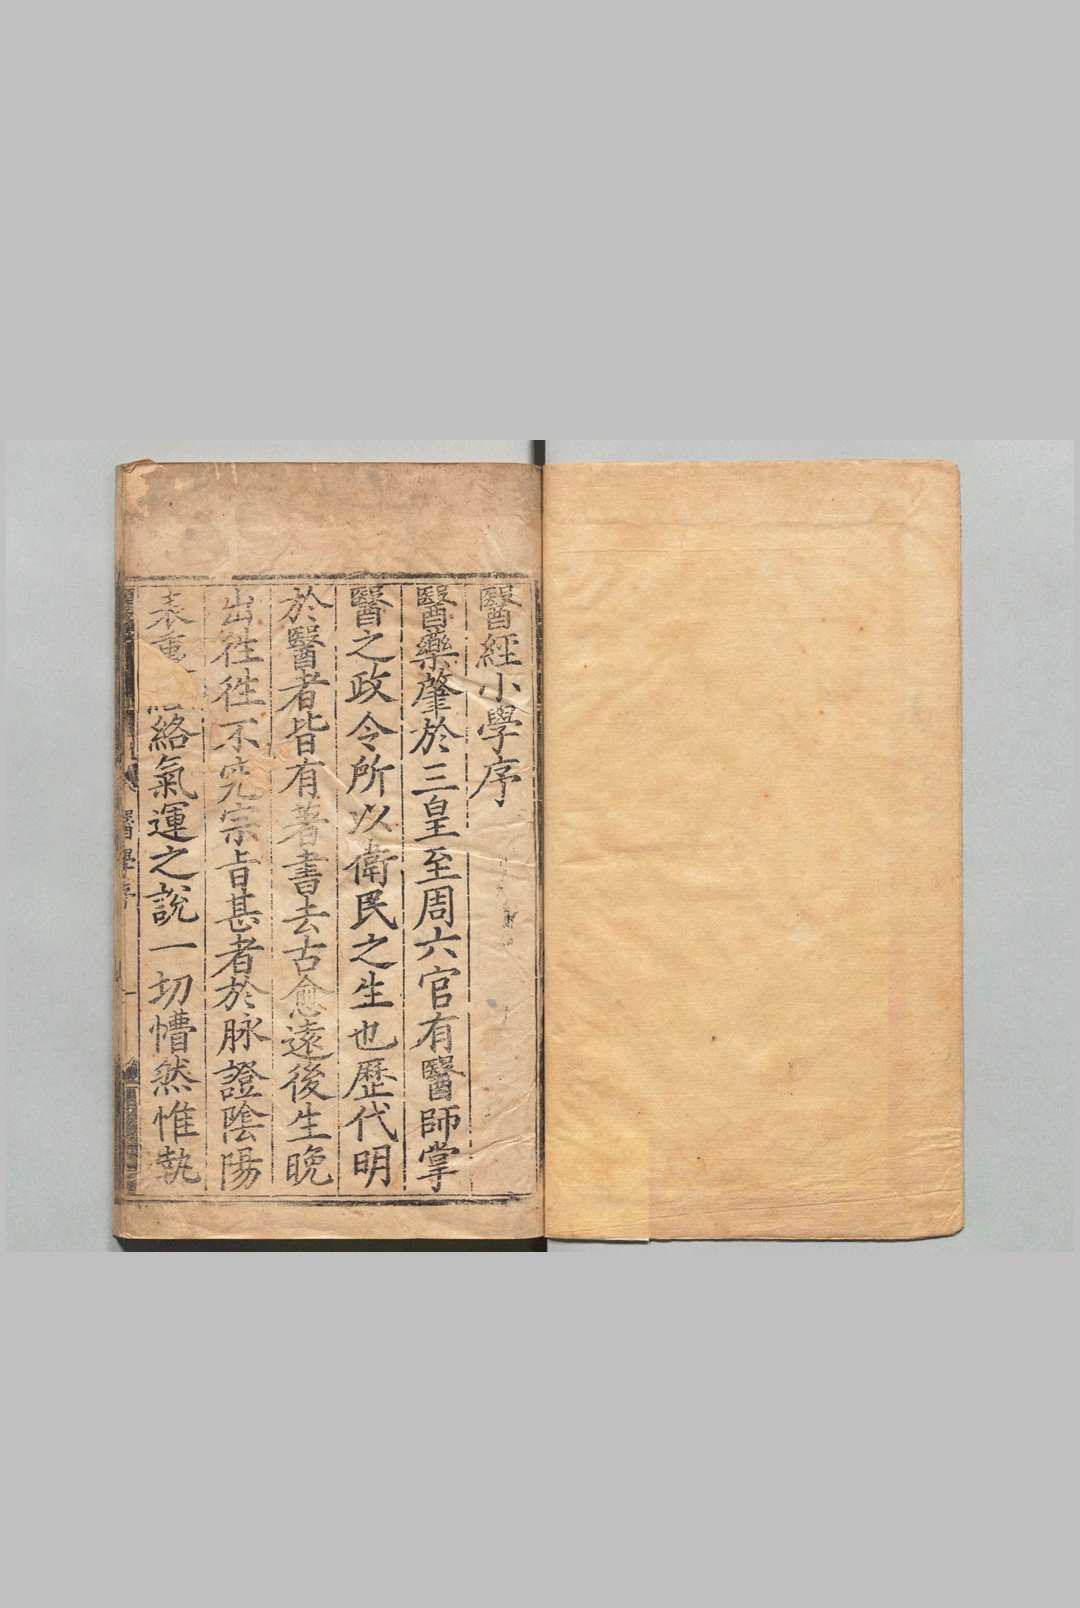 醫經小學序
醫藥肇於三皇至周六官有醫師掌
醫之政令所以衛民之生也歷代明
於醫者皆有著書去古愈遠後生晚
出徃徃不究宗旨甚者於脉證陰陽
表裏絡氣運之說一切懵然惟執
醫學序